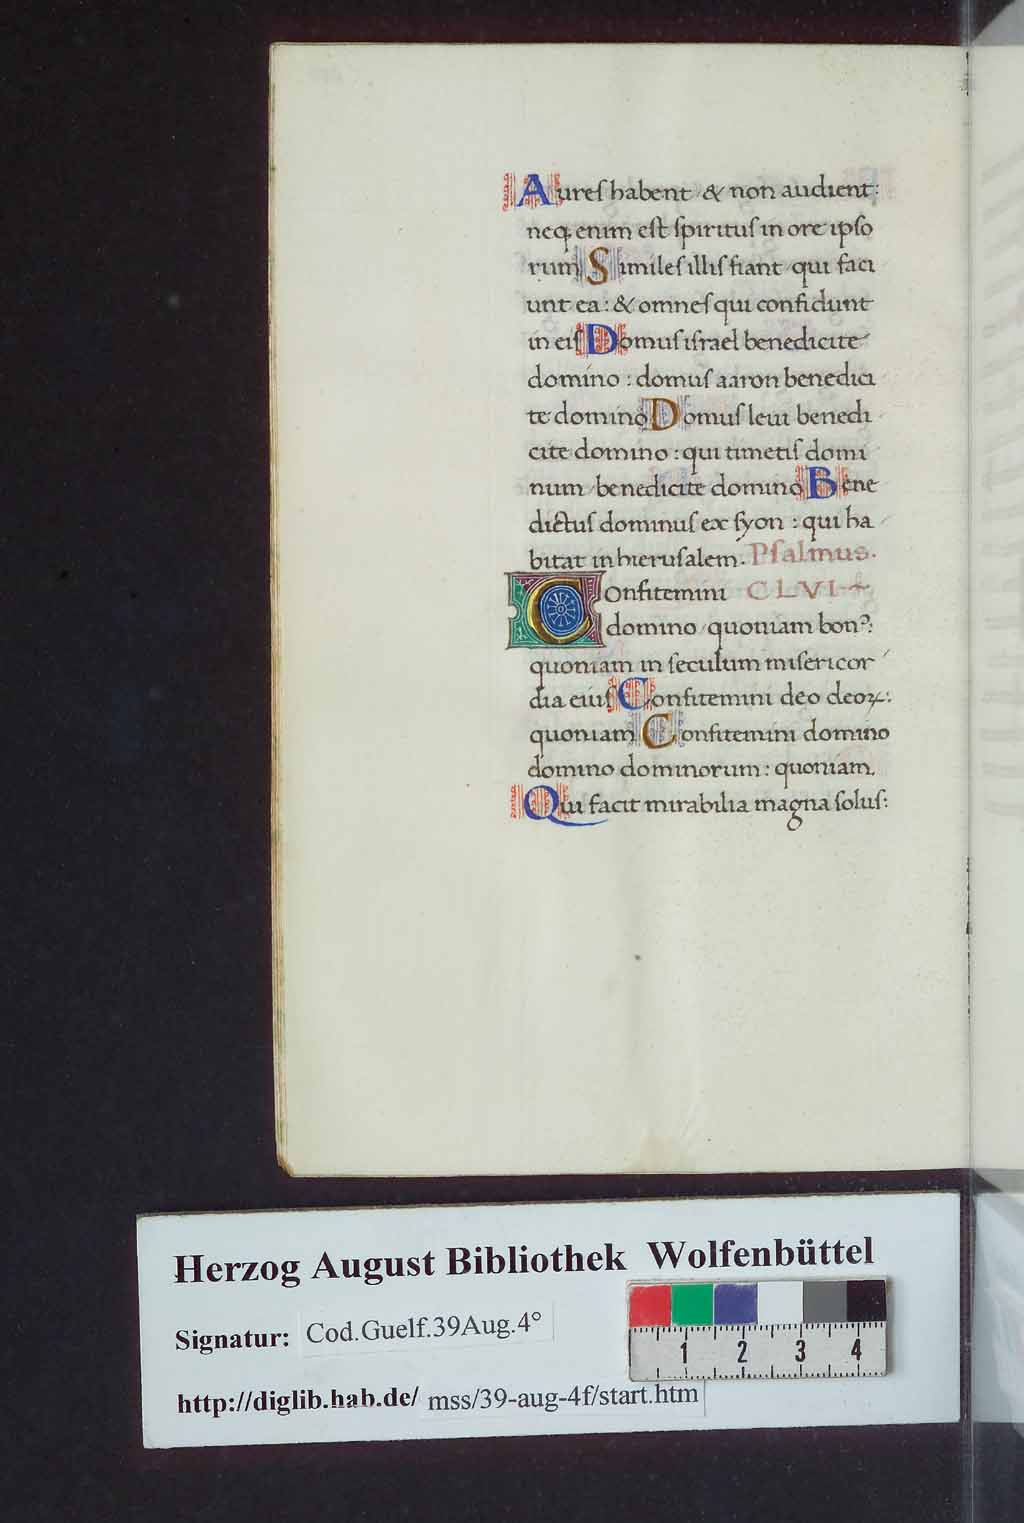 Aureſ habent / & non audient:
neqꝫ enim eſt ſpirituſ in ore ipſo
rum Simileſ illiſ fiant / qui faci
unt ea : & omneſ qui confidunt
in eiſ Domuſ iſrael benedicite
domino : domuſ aaron benedici
te domino Domuſ leui benedi
cite domino : qui timetiſ domi
num / benedicite domino Bene
dictuſ dominuſ ex ſyon : qui ha
bitat in hieruſalem. Pſalmus.
Confitemini CLVI
domino / quoniam bonꝰ:
quoniam in ſeculum miſericor
dia eiuſ Confitemini deo deoꝝ:
quoniam Confitemini domino
domino dominorum : quoniam.
Qui facit mirabilia magna ſoluſ:
Herzog August Bibliothek Wolfenbüttel
Signatur: Cod.Guelf.39Aug.4°
1 2 3 4
http://diglib.hab.de/ mss/39-aug-4f/start.htm